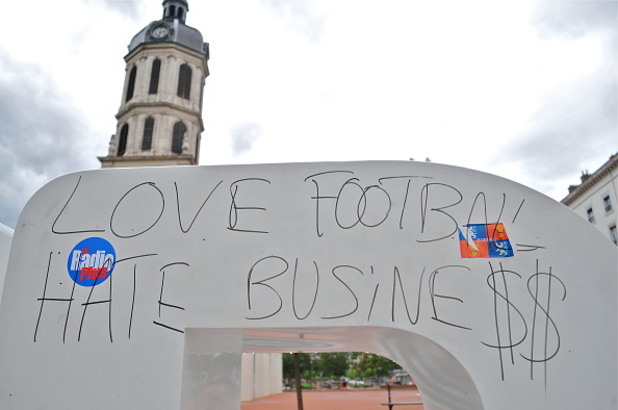 LOVE FOOTBALL
Radio Plus
HATE BUSiNE$$